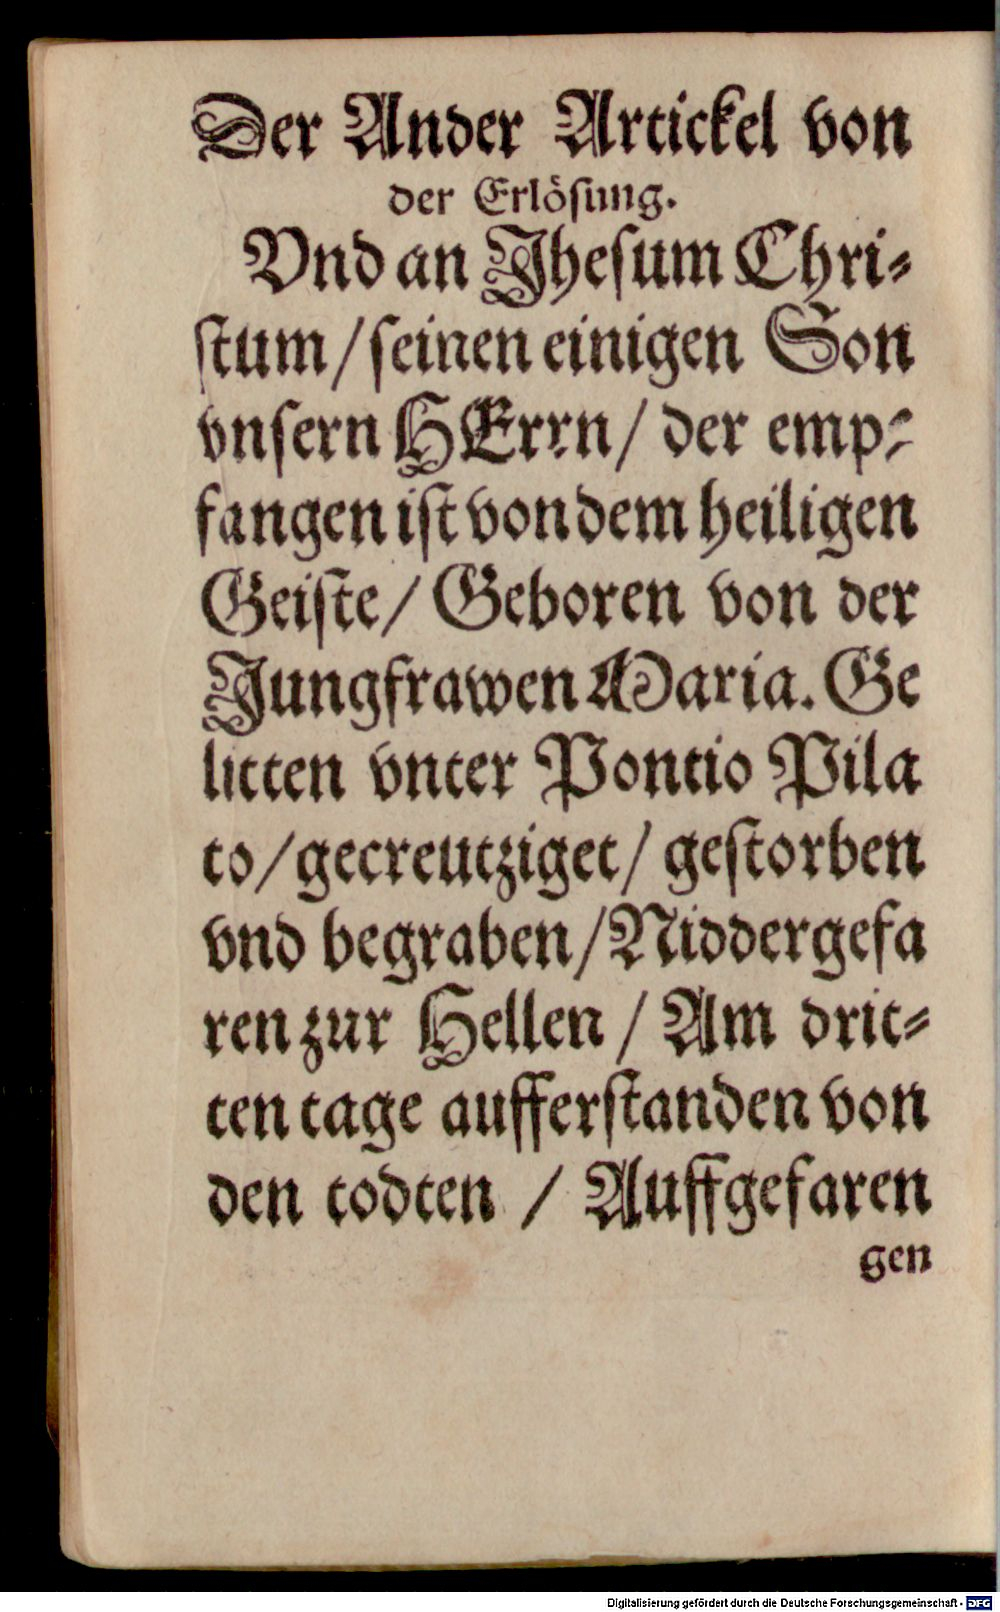 Der Ander Artickel von
der Erlösung.
Vnd an Jhesum Chri-
stum / seinen einigen Son
vnsern HErrn / der emp-
fangen ist von dem heiligen
Geiste / Geboren von der
Jungfrawen Maria. Ge
litten vnter Pontio Pila
to / gecreutziget / gestorben
vnd begraben / Niddergefa
ren zur Hellen / Am drit-
ten tage aufferstanden von
den todten / Auffgefaren
gen
Digitalisierung gefördert durch die Deutsche Forschungsgemeinschaft - DFG